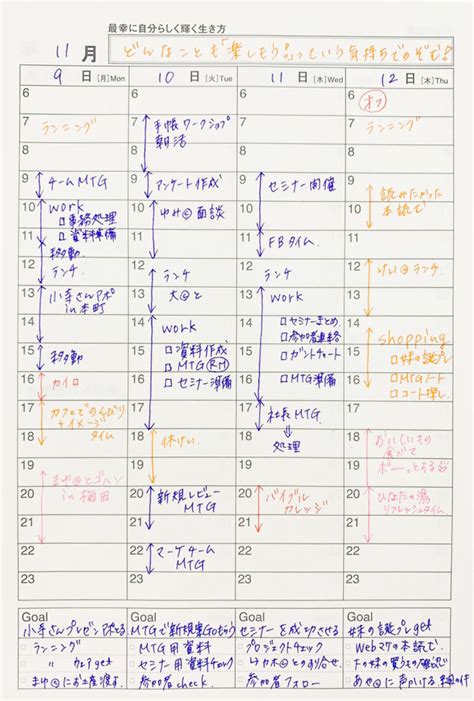 最幸に自分らしく輝く生き方
11 月
どんなことも「楽しもう♪」っていう気持ちでのぞむ♪
9 日 [月]Mon
10 日 [火]Tue
11 日 [水]Wed
12 日 [木]Thu
6
7
8
9
10
11
12
13
14
15
16
17
18
19
20
21
22
23
ランニング
チームMTG
work
□事務処理
□資料準備
移動
ランチ
小寺さんアポ
in 本町
移動
カイロ
カフェでのんびり
+イメージ
タイム
まゆ@とゴハン
in 梅田
6
7
8
9
10
11
12
13
14
15
16
17
18
19
20
21
22
23
手帳ワークショップ
朝活
アンケート作成
ゆみ@面談
ランチ
work
□資料作成
□MTG
□セミナー準備
休けい
新規レビュー
MTG
マーケチーム
MTG
6
7
8
9
10
11
12
13
14
15
16
17
18
19
20
21
22
23
セミナー開催
FBタイム
ランチ
work
□セミナーまとめ
□参加者連絡
□ガントチャート
□MTG準備
社長MTG
処理
バイブル
カレッジ
6
7
8
9
10
11
12
13
14
15
16
17
18
19
20
21
22
23
オフ
ランニング
読みたかった
本読む
けい@ランチ
shopping
□妹の誕プレ
□MTGノート
□コート探し
おいしいもの
食べて
ボーっとする
ひなたの湯
リフレッシュタイム
Goal
小寺さんプレゼン
ランニング
get
まゆ@にお土産渡す
Goal
MTGで新規案Goもらう
MTG用資料
セミナー用資料チェック
参加者check.
Goal
セミナーを成功させる
プロジェクトチェック
とのすり合せ
参加者フォロー
Goal
妹の誕プレget
Webマケの本読む
あや@に声かける